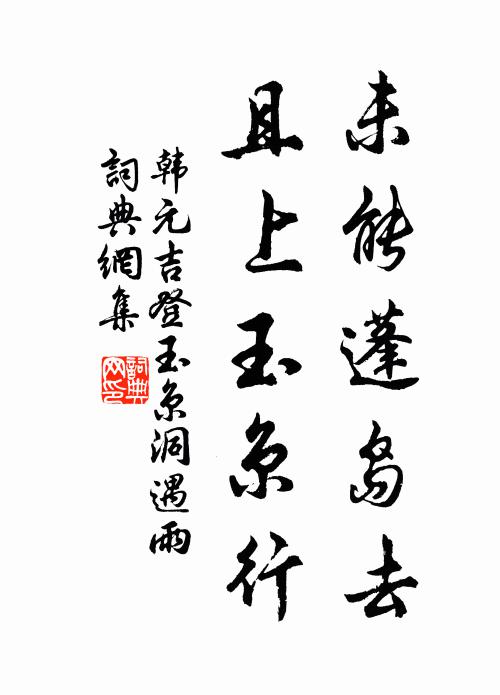 未能蓬岛去
且上玉京行
韩元吉登玉京洞遇雨
詞典網集
詞典网印